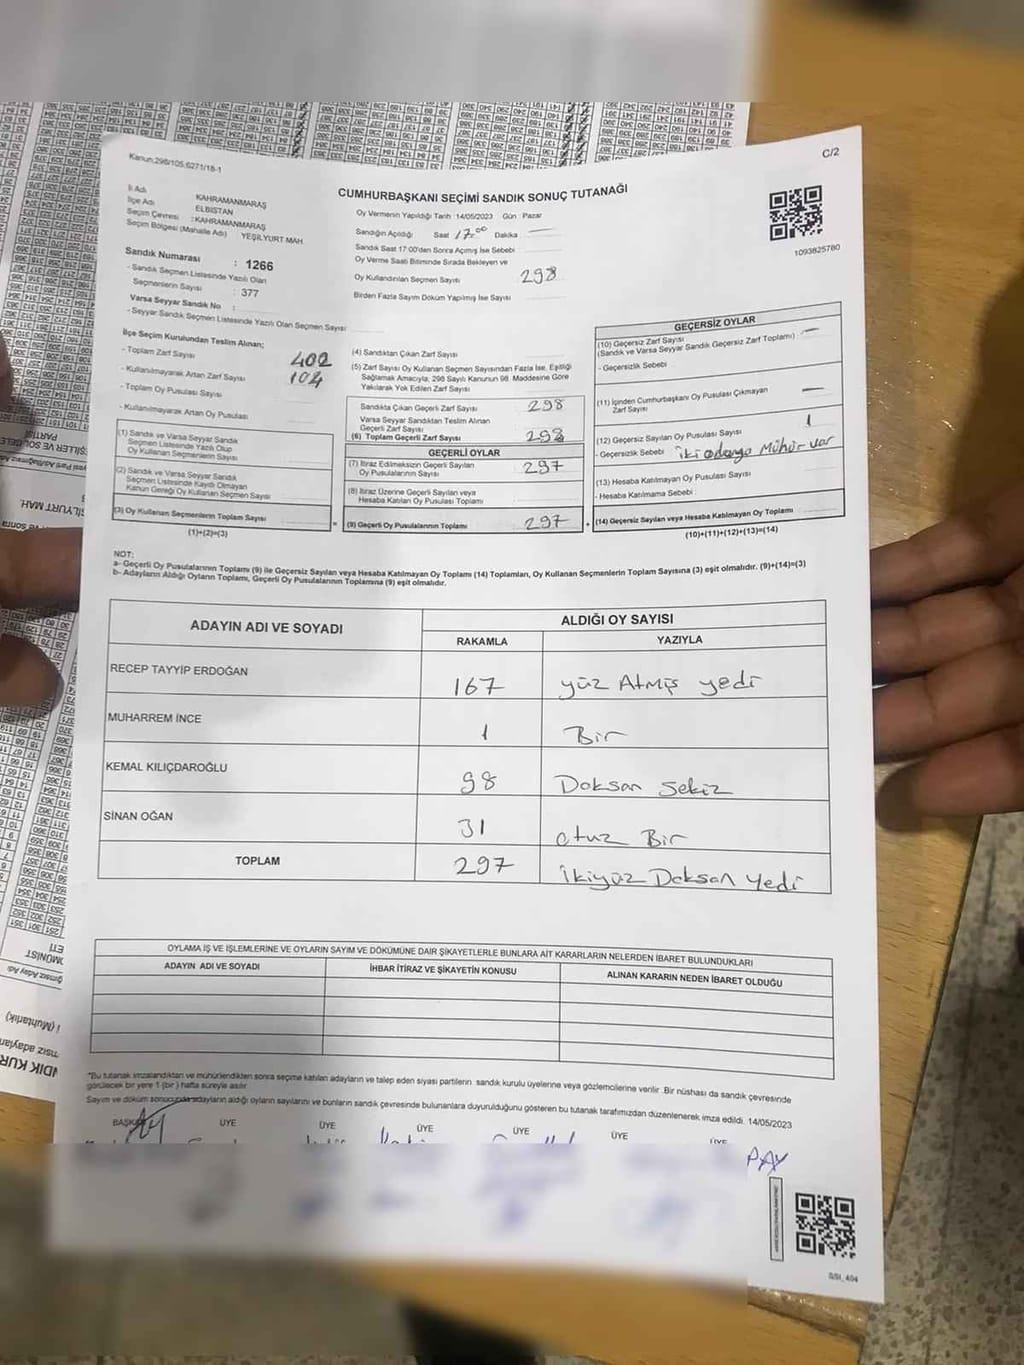 Kanun:298/105,6271/18-1
C/2
CUMHURBAŞKANI SEÇİMİ SANDIK SONUÇ TUTANAĞI
İl Adı KAHRAMANMARAŞ
İlçe Adı ELBİSTAN
Seçim Çevresi :KAHRAMANMARAŞ
Seçim Bölgesi (Mahalle Adı) YEŞİLYURT MAH
Sandık Numarası : 1266
- Sandık Seçmen Listesinde Yazılı Olan
Seçmenlerin Sayısı : 377
Varsa Seyyar Sandık No :
- Seyyar Sandık Seçmen Listesinde Yazılı Olan Seçmen Sayısı
Oy Vermenin Yapıldığı Tarih :14/05/2023 Gün : Pazar
Sandığın Açıldığı Saat 17.00 Dakika —
Sandık Saat 17:00'dan Sonra Açmış İse Sebebi
Oy Verme Saati Bitiminde Sırada Bekleyen ve
Oy Kullandırılan Seçmen Sayısı 298
Birden Fazla Sayım Döküm Yapılmış İse Sayısı
1093825780
İlçe Seçim Kurulundan Teslim Alınan;
- Toplam Zarf Sayısı 402
- Kullanılmayarak Artan Zarf Sayısı 104
- Toplam Oy Pusulası Sayısı
- Kullanılmayarak Artan Oy Pusulası
(1) Sandık ve Varsa Seyyar Sandık
Seçmen Listesinde Yazılı Olup
Oy Kullanan Seçmenlerin Sayısı
(2) Sandık ve Varsa Seyyar Sandık
Seçmen Listesinde Kayıtlı Olmayan
Kanun Gereği Oy Kullanan Seçmen Sayısı
(3) Oy Kullanan Seçmenlerin Toplam Sayısı
(1)+(2)=(3)
(4) Sandıktan Çıkan Zarf Sayısı
(5) Zarf Sayısı Oy Kullanan Seçmen Sayısından Fazla İse, Eşitliği
Sağlamak Amacıyla, 298 Sayılı Kanunun 98. Maddesine Göre
Yakılarak Yok Edilen Zarf Sayısı
Sandıkta Çıkan Geçerli Zarf Sayısı 298
Varsa Seyyar Sandıktan Teslim Alınan
Geçerli Zarf Sayısı
(6) Toplam Geçerli Zarf Sayısı 298
GEÇERLİ OYLAR
(7) İtiraz Edilmeksizin Geçerli Sayılan
Oy Pusulalarının Sayısı 297
(8) İtiraz Üzerine Geçerli Sayılan veya
Hesaba Katılan Oy Pusulası Toplamı
(9) Geçerli Oy Pusulalarının Toplamı 297
GEÇERSİZ OYLAR
(10) Geçersiz Zarf Sayısı —
(Sandık ve Varsa Seyyar Sandık Geçersiz Zarf Toplamı)
- Geçersizlik Sebebi
(11) İçinden Cumhurbaşkanı Oy Pusulası Çıkmayan
Zarf Sayısı —
(12) Geçersiz Sayılan Oy Pusulası Sayısı 1
- Geçersizlik Sebebi iki adaya Mühür var
(13) Hesaba Katılmayan Oy Pusulası Sayısı
- Hesaba Katılmama Sebebi
(14) Geçersiz Sayılan veya Hesaba Katılmayan Oy Toplamı
(10)+(11)+(12)+(13)=(14)
NOT:
a- Geçerli Oy Pusulalarının Toplamı (9) ile Geçersiz Sayılan veya Hesaba Katılmayan Oy Toplamı (14) Toplamları, Oy Kullanan Seçmenlerin Toplam Sayısına (3) eşit olmalıdır. (9)+(14)=(3)
b- Adayların Aldığı Oyların Toplamı, Geçerli Oy Pusulalarının Toplamına (9) eşit olmalıdır.
ADAYIN ADI VE SOYADI ALDIĞI OY SAYISI
RAKAMLA YAZIYLA
RECEP TAYYİP ERDOĞAN 167 yüz Atmış yedi
MUHARREM İNCE 1 Bir
KEMAL KILIÇDAROĞLU 98 Doksan Sekiz
SİNAN OĞAN 31 otuz Bir
TOPLAM 297 İkiyüz Doksan Yedi
OYLAMA İŞ VE İŞLEMLERİNE VE OYLARIN SAYIM VE DÖKÜMÜNE DAİR ŞİKAYETLERLE BUNLARA AİT KARARLARIN NELERDEN İBARET BULUNDUKLARI
ADAYIN ADI VE SOYADI İHBAR İTİRAZ VE ŞİKAYETİN KONUSU ALINAN KARARIN NEDEN İBARET OLDUĞU
*Bu tutanak imzalandıktan ve mühürlendikten sonra seçime katılan adayların ve talep eden siyasi partilerin sandık kurulu üyelerine veya gözlemcilerine verilir. Bir nüshası da sandık çevresinde
görülecek bir yere 1 (bir) hafta süreyle asılır.
Sayım ve döküm sonucunda adayların aldığı oyların sayılarını ve bunların sandık çevresinde bulunanlara duyurulduğunu gösteren bu tutanak tarafımızdan düzenlenerek imza edildi. 14/05/2023
BAŞKAN ÜYE ÜYE ÜYE ÜYE ÜYE ÜYE